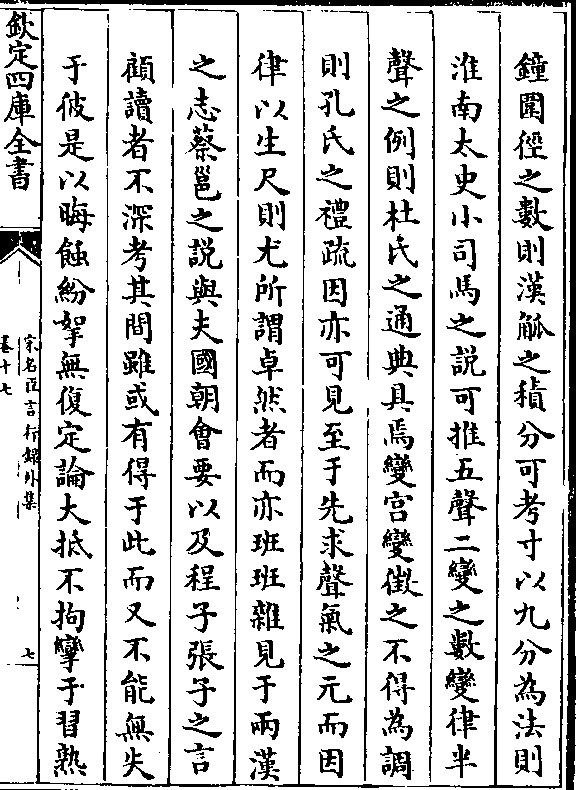 鐘圍徑之數則漢斛之積分可考寸以九分為法則
淮南太史小司馬之説可推五聲二變之數變律半
聲之例則杜氏之通典具焉變宫變徵之不得為調
則孔氏之禮疏因亦可見至于先求聲氣之元而因
律以生尺則尤所謂卓然者而亦班班雜見于兩漢
之志蔡邕之説與夫國朝會要以及程子張子之言
顧讀者不深考其間雖或有得于此而又不能無失
于彼是以晦蝕紛拏無復定論大抵不拘攣于習熟
欽定四庫全書
宋名臣言行録外集
卷十七
七